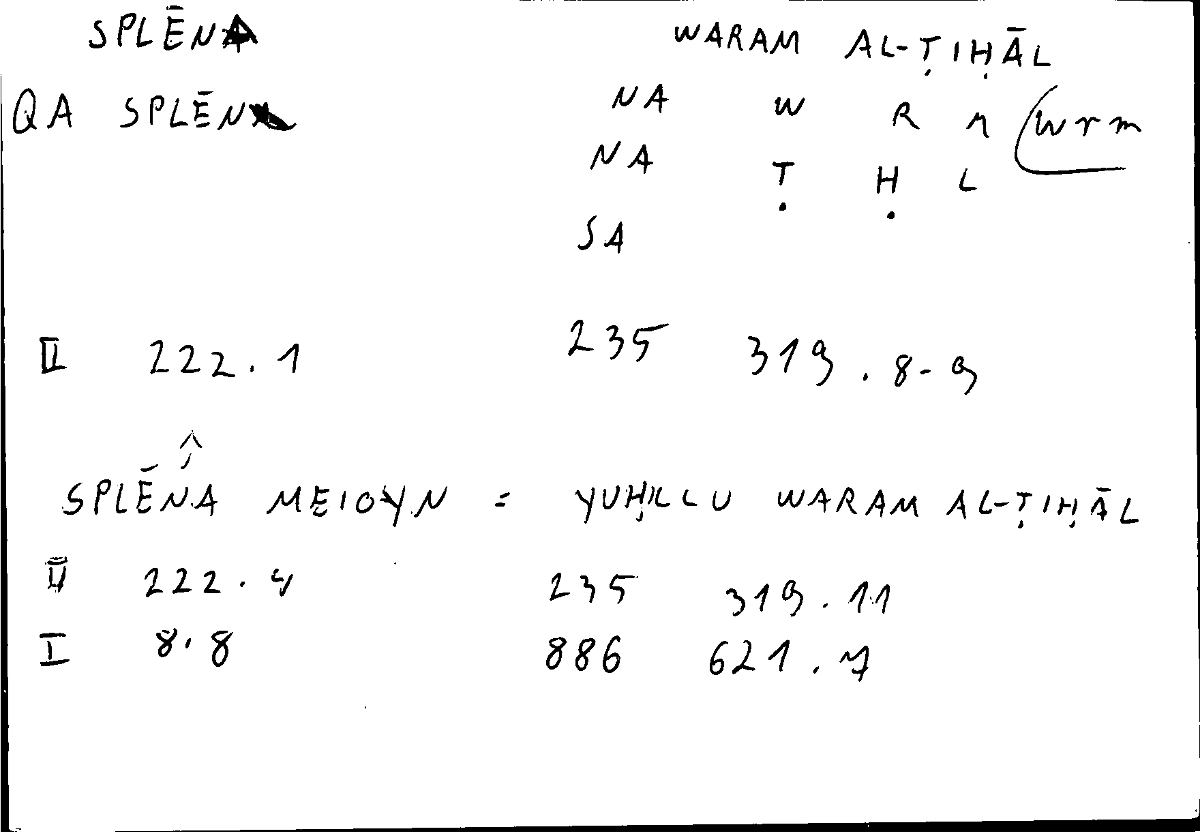 SPLĒNA WARAM AL-ṬIḤĀL
QA SPLĒN NA W R M (wrm
NA Ṭ Ḥ L
SA
II 222.1 235 319.8-9
SPLĒNA MEIOYN = YUḤLLU WARAM AL-ṬIḤĀL
II 222.4 235 319.11
I 8.8 886 621.7